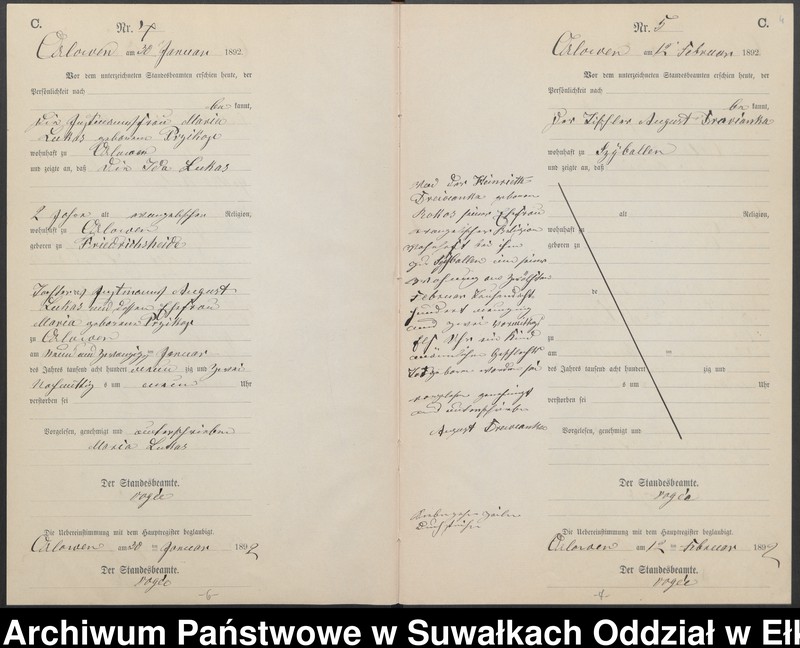 C.
Nr. 4
Czlowen am 30 Januar 1892.
Vor dem unterzeichneten Standesbeamten erschien heute, der
Persönlichkeit nach
be kannt,
die Instmannsfrau Maria
Lukas geborene
wohnhaft zu Czlowen
und zeigte an, daß die Ida Lukas
2 Jahre alt evangelischer Religion,
wohnhaft zu Czlowen
geboren zu Friedrichsheide
Tochter des Instmanns August
Lukas und dessen Ehefrau
Maria geborene
zu Czlowen
am neun und zwanzigsten Januar
des Jahres tausend acht hundert neun zig und zwei
Nachmittag s um neun Uhr
verstorben sei
Vorgelesen, genehmigt und unterschrieben
Maria Lukas
Der Standesbeamte.
Die Uebereinstimmung mit dem Hauptregister beglaubigt.
Czlowen am 30 ten Januar 1892
Der Standesbeamte.
-6-
C.
Nr. 5
Czlowen am 12 Februar 1892
Vor dem unterzeichneten Standesbeamten erschien heute, der
Persönlichkeit nach
be kannt,
der Tischler August
wohnhaft zu Szyballen
und zeigte an, daß
von der Heinriette
geborene
Kokos seiner Ehefrau
evangelischer Religion
wohnhaft bei ihm
zu Szyballen in seiner
Wohnung am zwölften
Februar tausend acht
hundert neunzig
und zwei Vormittags
elf Uhr ein Kind
männlichen Geschlechts
todtgeboren worden sei
Vorgelesen genehmigt
und unterschrieben
August
alt Religion,
wohnhaft zu
geboren zu
de
zu
am ten
des Jahres tausend acht hundert zig und
s um Uhr
verstorben sei
Vorgelesen, genehmigt und
Der Standesbeamte.
Die Uebereinstimmung mit dem Hauptregister beglaubigt.
Czlowen am 12 ten Februar 1892
Der Standesbeamte.
Archiwum Państwowe w Suwałkach Oddział w Ełk